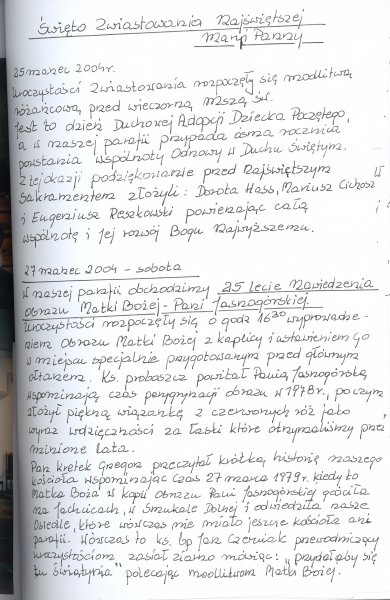 Święto Zwiastowania Najświętszej
Maryi Panny
25 marzec 2004r.
Uroczystości Zwiastowania rozpoczęły się modlitwą
różańcową przed wieczorną mszą św.
Jest to dzień Duchowej Adopcji Dziecka Poczętego,
a w naszej parafii przypada ósma rocznica
powstania wspólnoty Odnowy w Duchu Świętym.
Z tej okazji podziękowanie przed Najświętszym
Sakramentem złożyli: Dorota Hass, Mariusz Cichosz
i Eugeniusz Reszkowski powierzając całą
wspólnotę i Jej rozwój Bogu Najwyższemu.
27 marzec 2004 - sobota
W naszej parafii obchodzimy 25 lecie Nawiedzenia
Obrazu Matki Bożej - Pani Jasnogórskiej.
Uroczystości rozpoczęły się o godz 16³⁰ wyprowadze-
niem Obrazu Matki Bożej z kaplicy i ustawieniem Go
w miejscu specjalnie przygotowanym przed głównym
ołtarzem. Ks. proboszcz powitał Panią Jasnogórską,
wspominają czas peregrynacji obrazu w 1978r., po czym
złożył piękną wiązankę z czerwonych róż jako
wyraz wdzięczności za łaski które otrzymaliśmy przez
minione lata.
Pan Krętek Gregor przeczytał krótką historię naszego
kościoła wspominając czas 27 marca 1979r. kiedy to
Matka Boża w kopii Obrazu Pani Jasnogórskiej gościła
na Jachcicach, w Smukale Dolnej i odwiedziła nasze
Osiedle, które wówczas nie miało jeszcze kościoła ani
parafii. Wówczas to ks. bp Jan Czerniak przewodniczący
uroczystościom zasiał ziarno mówiąc: "przydałaby się
tu świątynia" polecając modlitwom Matki Bożej.